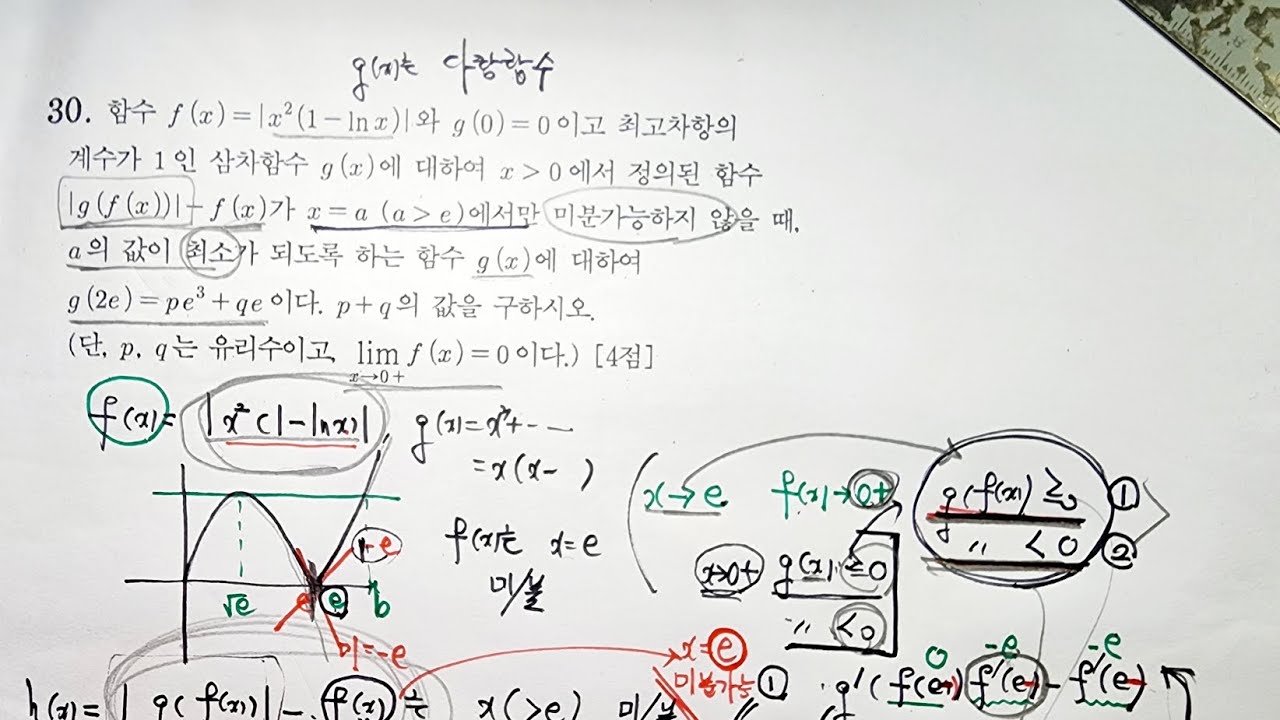 g(x)는 다항함수
30. 함수 f(x)=|x²(1-ln x)|와 g(0)=0이고 최고차항의
계수가 1인 삼차함수 g(x)에 대하여 x>0에서 정의된 함수
|g(f(x))|-f(x)가 x=a (a>e)에서만 미분가능하지 않을 때,
a의 값이 최소가 되도록 하는 함수 g(x)에 대하여
g(2e)=pe³+qe이다. p+q의 값을 구하시오.
(단, p, q는 유리수이고, lim f(x)=0이다.) [4점]
x→0+
f(x)=|x²(1-ln x)|, g(x)=x³+--
=x(x-  )
x→e f(x)→0+ g(f(x))≥0 ①
〃 <0 ②
f(x)는 x=e
미/불
x→0+ g(x)≥0
〃 <0
-e
√e e e b
기=-e
x=e
미분가능 ① g'(f(e))f'(e)-f'(e)
0 -e -e
h(x)=|g(f(x))|-f(x)는 x(>e) 미/불